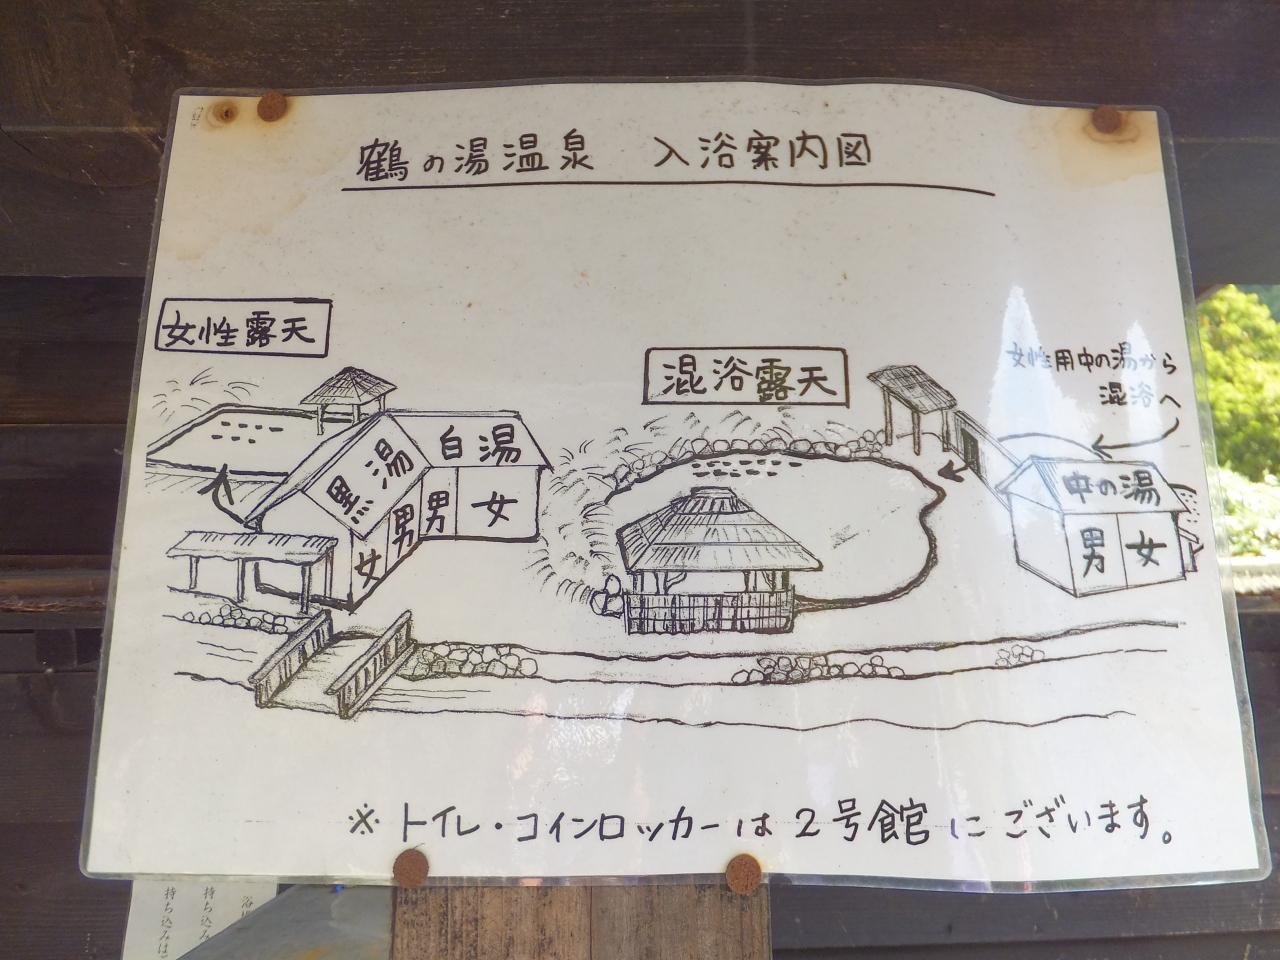 鶴の湯温泉 入浴案内図
女性露天
混浴露天
女性用中の湯から
混浴へ
黒湯
白湯
女
男
男
女
中の湯
男
女
※トイレ・コインロッカーは2号館にございます。
持ち込みは
持ち込み
浴